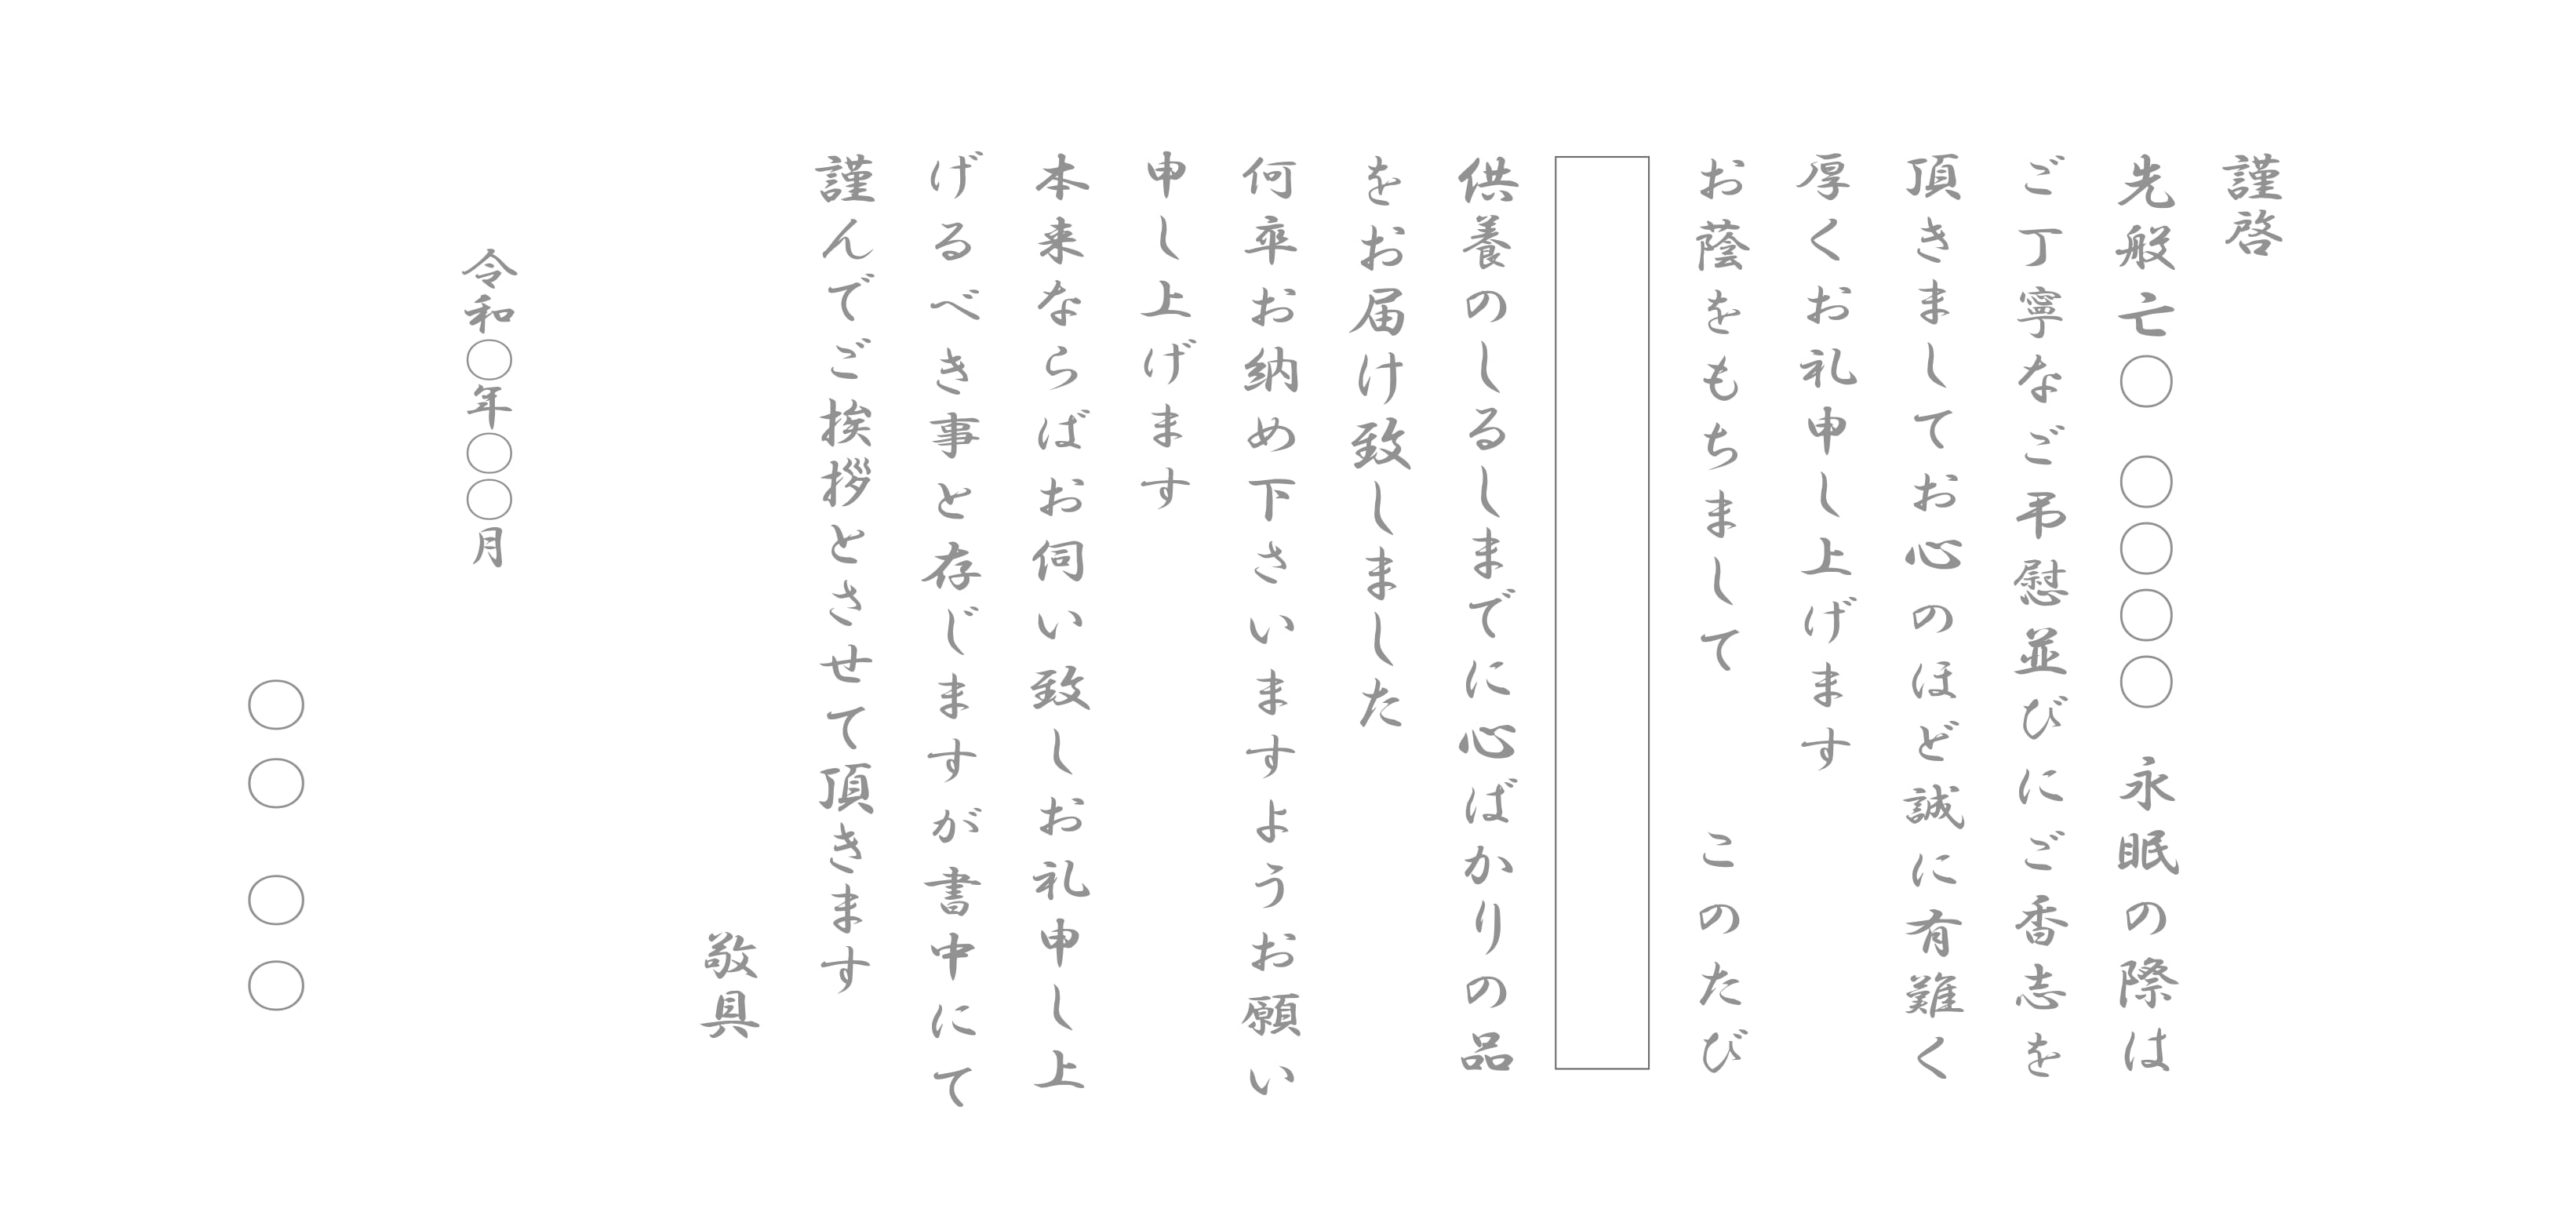 謹啓
先般亡○　○○○○　永眠の際は
ご丁寧なご弔慰並びにご香志を
頂きましてお心のほど誠に有難く
厚くお礼申し上げます
お蔭をもちまして　　このたび
供養のしるしまでに心ばかりの品
をお届け致しました
何卒お納め下さいますようお願い
申し上げます
本来ならばお伺い致しお礼申し上
げるべき事と存じますが書中にて
謹んでご挨拶とさせて頂きます
敬具
令和○年○○月
○○　○○